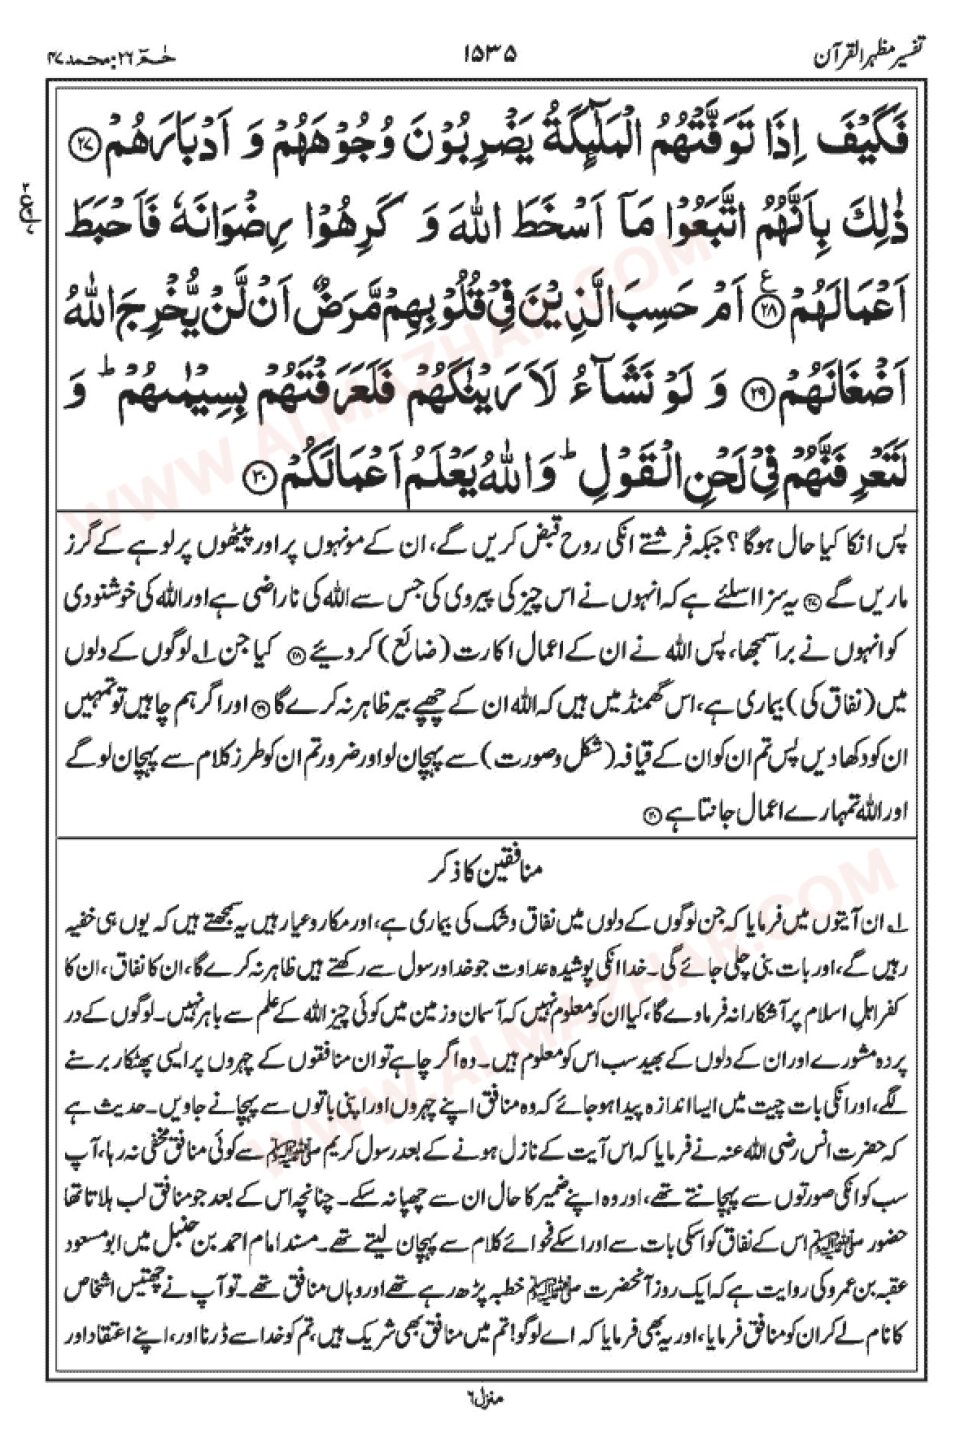 تفسیر مظہر القرآن
۱۵۳۵
حٰمٓ ۲۶: محمد ۴۷
فَكَيْفَ اِذَا تَوَفَّتْهُمُ الْمَلٰٓئِكَةُ يَضْرِبُوْنَ وُجُوْهَهُمْ وَ اَدْبَارَهُمْ ﴿۲۷﴾
ذٰلِكَ بِاَنَّهُمُ اتَّبَعُوْا مَاۤ اَسْخَطَ اللّٰهَ وَ كَرِهُوْا رِضْوَانَهٗ فَاَحْبَطَ
اَعْمَالَهُمْ ﴿۲۸﴾ ع اَمْ حَسِبَ الَّذِيْنَ فِيْ قُلُوْبِهِمْ مَّرَضٌ اَنْ لَّنْ يُّخْرِجَ اللّٰهُ
اَضْغَانَهُمْ ﴿۲۹﴾ وَ لَوْ نَشَآءُ لَاَرَيْنٰكَهُمْ فَلَعَرَفْتَهُمْ بِسِيْمٰىهُمْ ؕ وَ
لَتَعْرِفَنَّهُمْ فِيْ لَحْنِ الْقَوْلِ ؕ وَاللّٰهُ يَعْلَمُ اَعْمَالَكُمْ ﴿۳۰﴾
پس انکا کیا حال ہوگا؟ جبکہ فرشتے انکی روح قبض کریں گے، ان کے مونہوں پر اور پیٹھوں پر لوہے کے گرز
ماریں گے ﴿۲۷﴾ یہ سزا اسلئے ہے کہ انہوں نے اس چیز کی پیروی کی جس سے اللہ کی ناراضی ہے اور اللہ کی خوشنودی
کو انہوں نے برا سمجھا، پس اللہ نے ان کے اعمال اکارت (ضائع) کر دیئے ﴿۲۸﴾ کیا جن ۱؎ لوگوں کے دلوں
میں (نفاق کی) بیماری ہے، اس گھمنڈ میں ہیں کہ اللہ ان کے چھپے بیر ظاہر نہ کرے گا ﴿۲۹﴾ اور اگر ہم چاہیں تو تمہیں
ان کو دکھا دیں پس تم ان کو ان کے قیافہ (شکل وصورت) سے پہچان لو اور ضرور تم ان کو طرز کلام سے پہچان لو گے
اور اللہ تمہارے اعمال جانتا ہے ﴿۳۰﴾
منافقین کا ذکر
۱؎ ان آیتوں میں فرمایا کہ جن لوگوں کے دلوں میں نفاق وشک کی بیماری ہے، اور مکار وعیار ہیں یہ سمجھتے ہیں کہ یوں ہی خفیہ
رہیں گے، اور بات بنی چلی جائے گی۔ خدا انکی پوشیدہ عداوت جو خدا ورسول سے رکھتے ہیں ظاہر نہ کرے گا، ان کا نفاق، ان کا
کفر اہل اسلام پر آشکارا نہ فرماوے گا، کیا ان کو معلوم نہیں کہ آسمان وزمین میں کوئی چیز اللہ کے علم سے باہر نہیں۔ لوگوں کے در
پردہ مشورے اور ان کے دلوں کے بھید سب اس کو معلوم ہیں۔ وہ اگر چاہے تو ان منافقوں کے چہروں پر ایسی پھٹکار برسنے
لگے، اور انکی بات چیت میں ایسا اندازہ پیدا ہو جائے کہ وہ منافق اپنے چہروں اور اپنی باتوں سے پہچانے جاویں۔ حدیث ہے
کہ حضرت انس رضی اللہ عنہ نے فرمایا کہ اس آیت کے نازل ہونے کے بعد رسول کریم ﷺ سے کوئی منافق مخفی نہ رہا، آپ
سب کو انکی صورتوں سے پہچانتے تھے، اور وہ اپنے ضمیر کا حال ان سے چھپا نہ سکے۔ چنانچہ اس کے بعد جو منافق لب ہلاتا تھا
حضور ﷺ اس کے نفاق کو اسکی بات سے اور اسکے فحوائے کلام سے پہچان لیتے تھے۔ مسند امام احمد بن حنبل میں ابو مسعود
عقبہ بن عمرو کی روایت ہے کہ ایک روز آنحضرت ﷺ خطبہ پڑھ رہے تھے اور وہاں منافق تھے۔ تو آپ نے چھتیس اشخاص
کا نام لے کر ان کو منافق فرمایا، اور یہ بھی فرمایا کہ اے لوگو! تم میں منافق بھی شریک ہیں، تم کو خدا سے ڈرنا اور، اپنے اعتقاد اور
منزل ۶
WWW.ALMAZHAR.COM
WWW.ALMAZHAR.COM